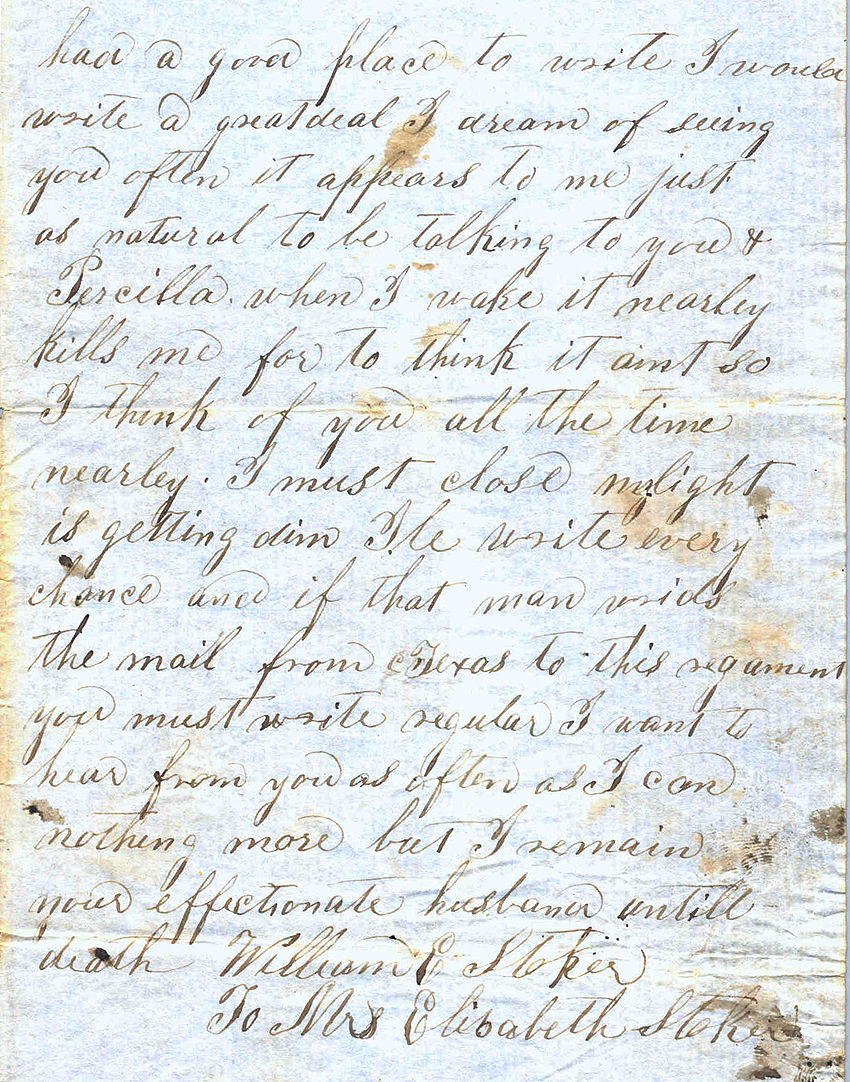 had a good place to write I would
write a great deal I dream of seeing
you often it appears to me just
as natural to be talking to you &
Percilla. when I wake it nearley
kills me for to think it aint so
I think of you all the time
nearley. I must close my light
is getting dim Ile write every
chance and if that man wrids
the mail from Texas to this regument
you must write regular I want to
hear from you as often as I can
nothing more but I remain
your effectionate husband untill
death William E Stoker
To Mrs Elisabeth Stoker